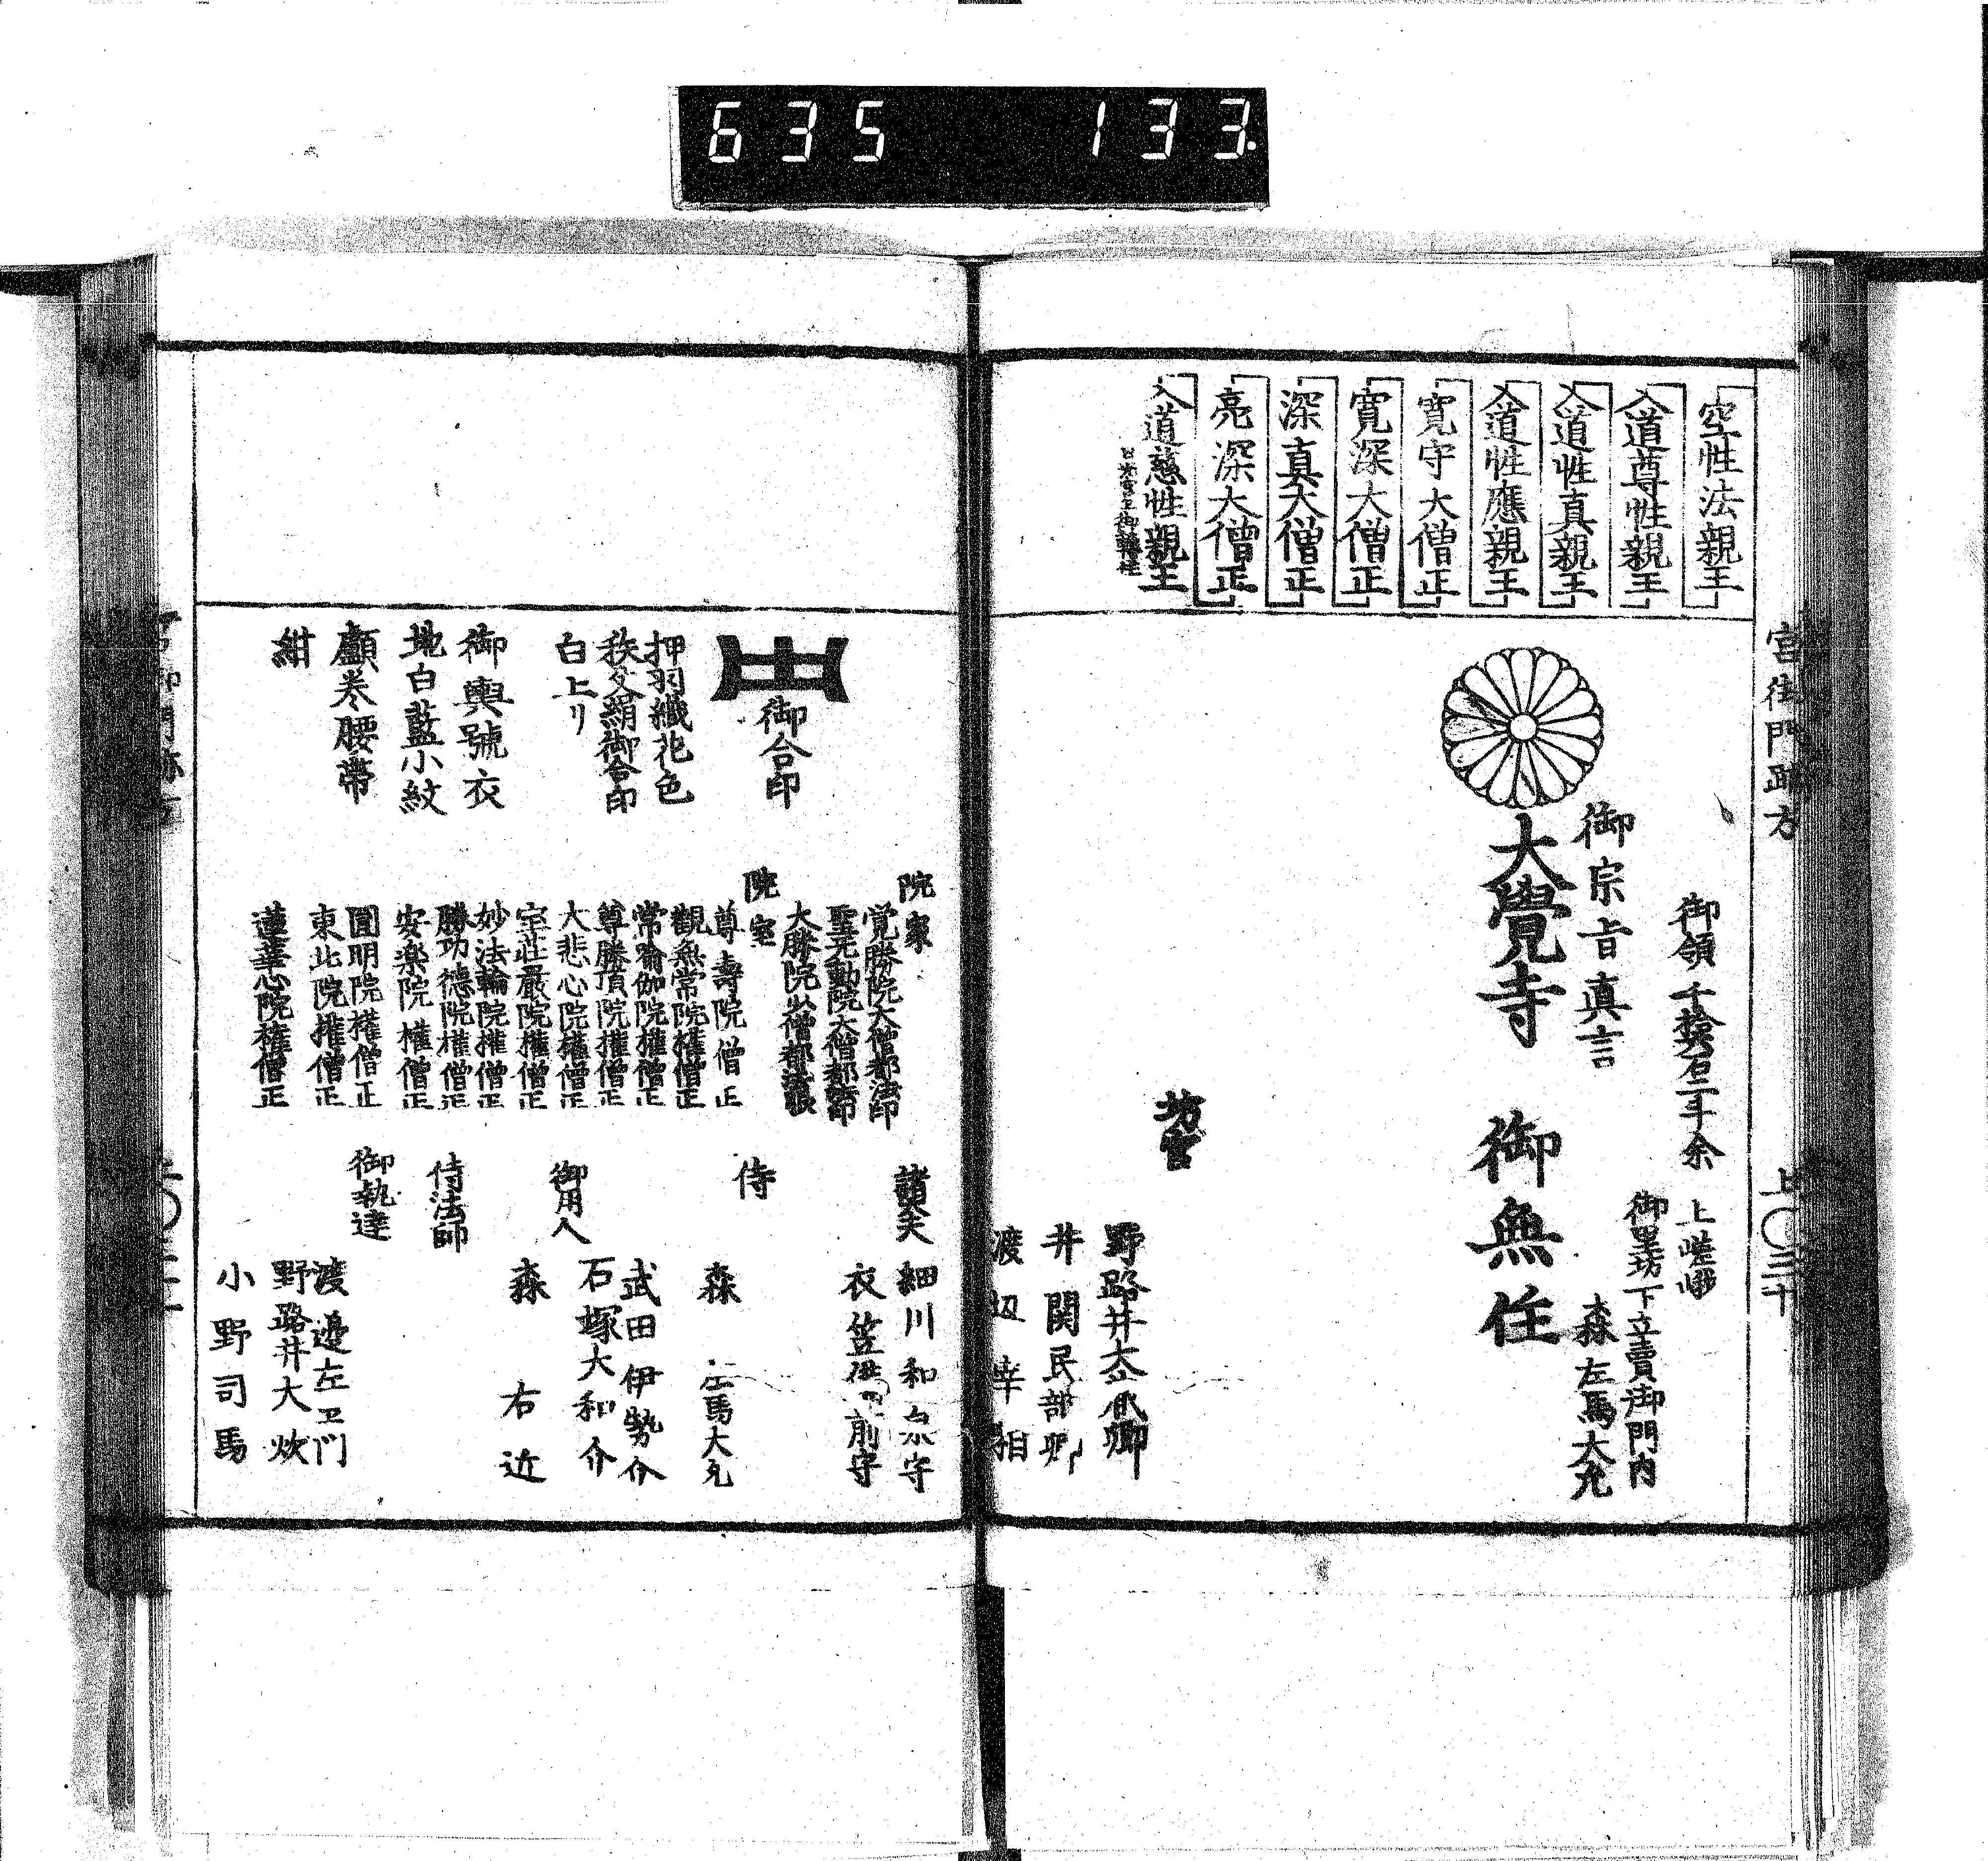 635 133.
宮御門跡方
上〇三十
空性法親王
入道尊性親王
入道性真親王
入道性應親王
寛守大僧正
寛深大僧正
深真大僧正
亮深大僧正
入道慈性親王
御領千拾六石二斗余
上嵯峨
御里坊下立賣御門内
森左馬大允
御宗旨真言
大覺寺 御無住
坊官
野路井大藏卿
井関民部卿
渡辺宰相
御合印
押羽織花色
秩父絹御合印
白上リ
御輿號衣
地白藍小紋
顱巻腰帯
紺
院家
覚勝院大僧都法印
聖无動院大僧都法印
大勝院少僧都法眼
院室
尊壽院僧正
觀無常院権僧正
常瑜伽院権僧正
尊勝頂院権僧正
大悲心院権僧正
室荘嚴院権僧正
妙法輪院権僧正
勝功徳院権僧正
安楽院権僧正
圓明院権僧正
東北院権僧正
蓮華心院権僧正
諸大夫
細川和泉守
衣笠備前守
侍
森左馬大允
武田伊勢介
石塚大和介
御用人
森右近
侍法師
御執達
渡邉左ヱ門
野路井大炊
小野司馬